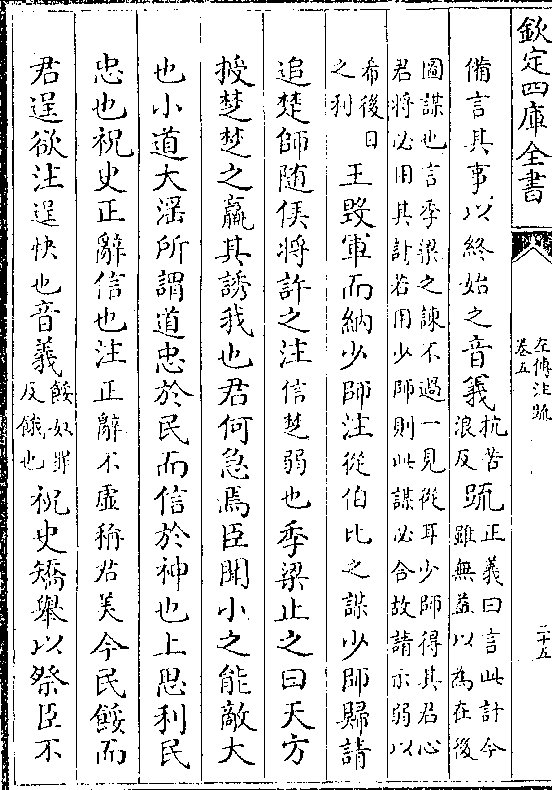 欽定四庫全書
左傳注疏
卷五
二十五
備言其事以終始之音義抗苦
浪反疏正義曰言此計今
雖無益以為在後
圖謀也言季梁之諫不過一見從耳少師得其君心
君將必用其計若用少師則此謀必合故請示弱以
希後日
之利王毀軍而納少師注從伯比之謀少師歸請
追楚師隨侯將許之注信楚弱也季梁止之曰天方
授楚楚之羸其誘我也君何急焉臣聞小之能敵大
也小道大淫所謂道忠於民而信於神也上思利民
忠也祝史正辭信也注正辭不虛稱君美今民餒而
君逞欲注逞快也音義餒奴罪
反餓也祝史矯舉以祭臣不